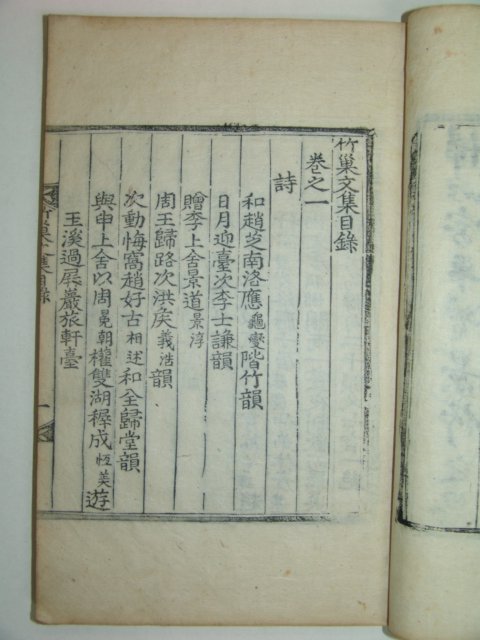 竹巢文集目錄
卷之一
詩
和趙芝南洛應龜燮階竹韻
日月迎臺次李士謙韻
贈李上舍景道景淳
周王歸路次洪矦義浩韻
次動悔窩趙好古相述和全歸堂韻
與申上舍以周冕朝權雙湖穉成恆美遊
玉溪過屛巖旅軒臺
竹巢文集目錄
一